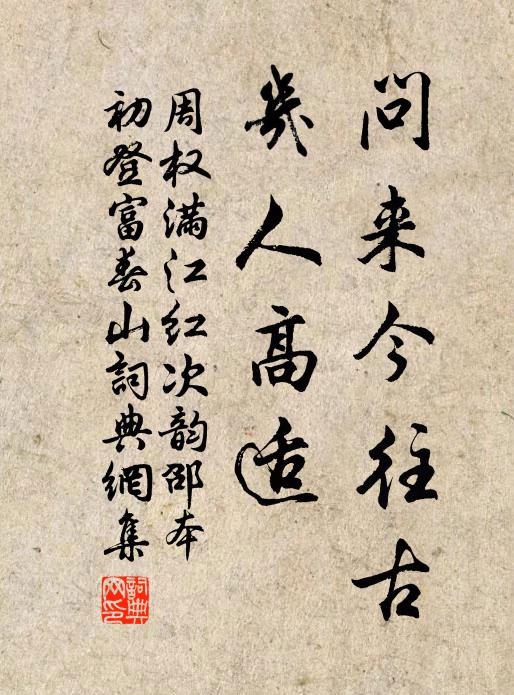 问来今往古
幾人高适
周权满江红次韵邵本
初登富春山詞典網集
詞典网印